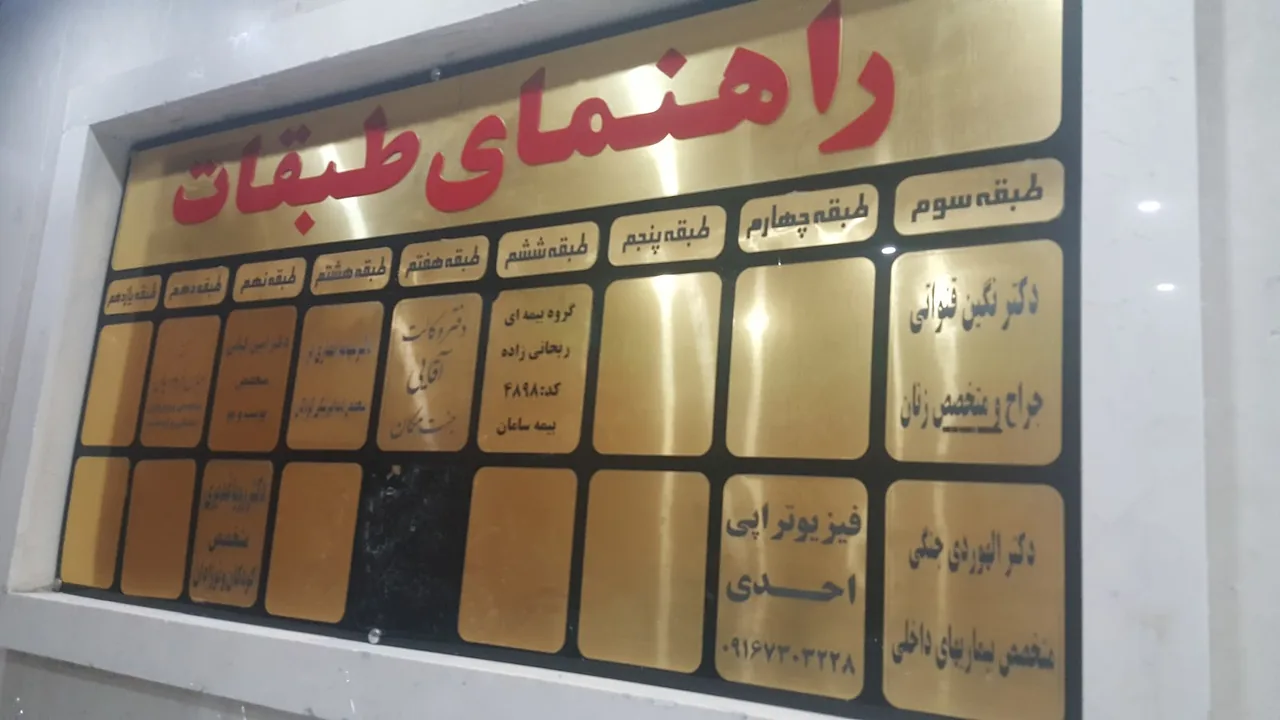 راهنمای طبقات
طبقه سوم
طبقه چهارم
طبقه پنجم
طبقه ششم
طبقه هفتم
طبقه هشتم
طبقه نهم
طبقه دهم
طبقه یازدهم
دکتر نگین قنواتی
جراح و متخصص زنان
گروه بیمه ای
ریحانی زاده
کد:۴۸۹۸
بیمه سامان
دفتر وکالت
آقایی
جنت مکان
متخصص
دکتر الهوردی جنگی
متخصص بیماریهای داخلی
فیزیوتراپی
احدی
۰۹۱۶۷۳۰۳۲۲۸
متخصص
کودکان و نوزادان